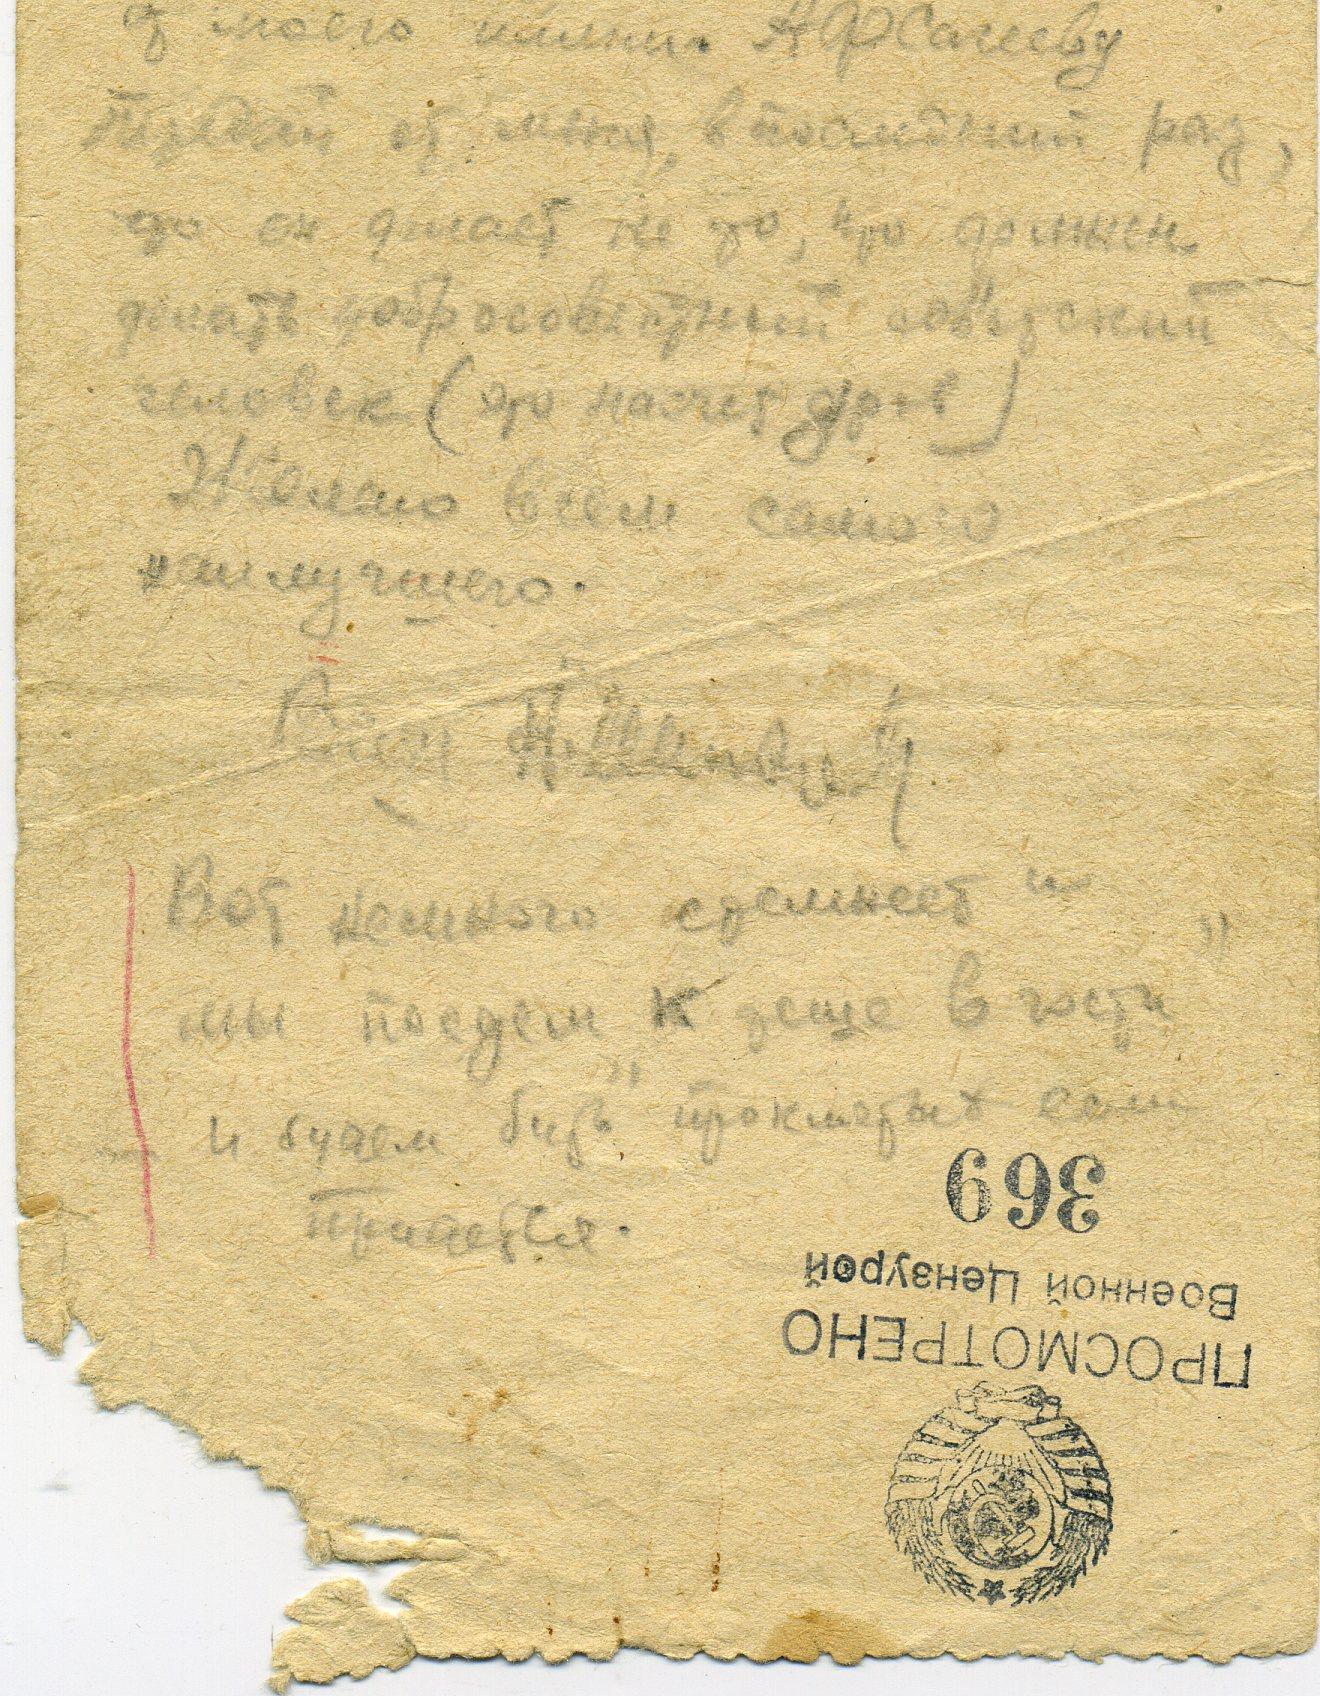 от моего имени А Ф Сачеву
Передай от меня, в последний раз,
что он делает не то, что должен
делать добросовестный советский
человек (это насчет дров)
Желаю всем самого
наилучшего.
Ваш Н.
Вот немного стемнеет и
мы поедем к "теще в гости"
и будем бить проклятых если
придется.
369
Военной Цензурой
ПРОСМОТРЕНО